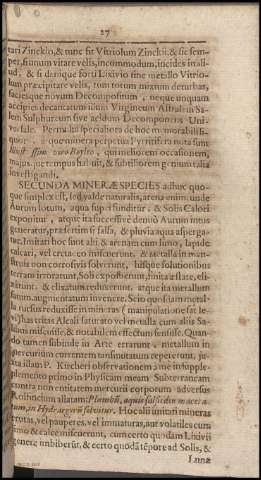 27
tari Zinckio, & tunc fit Vitriolum Zinckii, & sic sem-
per, si unum vitare velis, incommodum, incides in aliud,
& si denique forti Lixivio sine metallo Vitrio-
lum præcipitare velis, tum totum mixtum deturbas,
faciesque novum Decompositum, neque unquam
accipies decantatum illum Virgineum Astralem Sa-
lem Sulphureum sive acidum Decomponens Uni-
versale. Permulta specialiora de hoc memorabilis-
que minera perpetua Vitrioli
occasionem,
majus, & subtiliorem genium talia
investigandi.
SECUNDA MINERÆ SPECIES adhuc quo-
que simplex est, sed valde naturalis, arena enim unde
Aurum lotum, aqua superfunditur, & Solis Calori
exponitur, atque ita successive denuò Aurum intus
generatur, præsertim si salsa, & pluvia aqua asperga-
tur. Imitari hoc sunt alii & arenam cum limo, lapide
calcari, vel creta commiscuerunt, & metalla in man-
struis non corrosivis solverunt, hisque solutionibus
terram irrorarunt, Soli exposuerunt, finita æstate, eli-
& elixatura reduxerunt, atque ita metallum
suum augmentatum invenere. Scio quosdam metal-
la rursus reduxisse in mineras (manipulatione
Alcali saturato vel metalla cum aliis Sa-
libus miscuisse & notabilem effectum sensisse. Quan-
do tamen subinde in Arte errarunt, metallum in
mercurium currentem transmutatum repererunt, ju-
xta illam P. Kircheri observationem à me in supple-
mento primo in Physicam meam Subterraneam
contra non entitatem mercurii corporum adversus
Rolfincium allatam: Plumbum, aquis sulsidis macera-
tum, in Hydrargyrum solvitur. Hoc alii imitati mineras
crutas, vel pauperes, vel immaturas, aut volatiles cum
limo & calce miscuerunt, cum certo quodam Lixivii
genere imbiberunt, & certo quodã tẽpore ad Solis, &
Lunæ